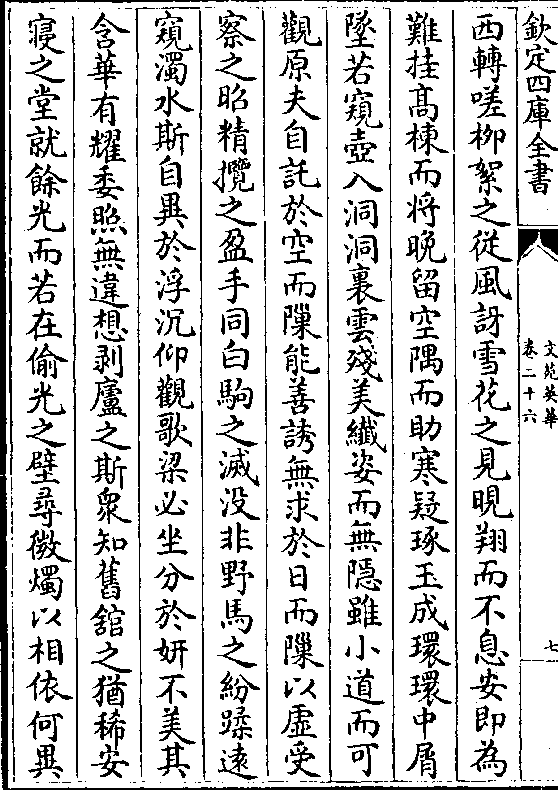 欽定四庫全書
文苑英華
卷二十六
七
西轉嗟柳絮之從風訝雪花之見晛翔而不息安即為
難挂髙棟而将晩留空隅而助寒疑琢玉成環環中屑
墜若窺壺入洞洞裏雲殘美纎姿而無隠雖小道而可
觀原夫自託於空而隟能善誘無求於日而隟以虚受
察之昭精攬之盈手同白駒之滅没非野馬之紛蹂逺
窺濁水斯自異於浮沉仰觀歌梁必坐分於妍不美其
含華有耀委照無違想剥廬之斯衆知舊舘之猶稀安
寢之堂就餘光而若在偷光之壁尋微燭以相依何異